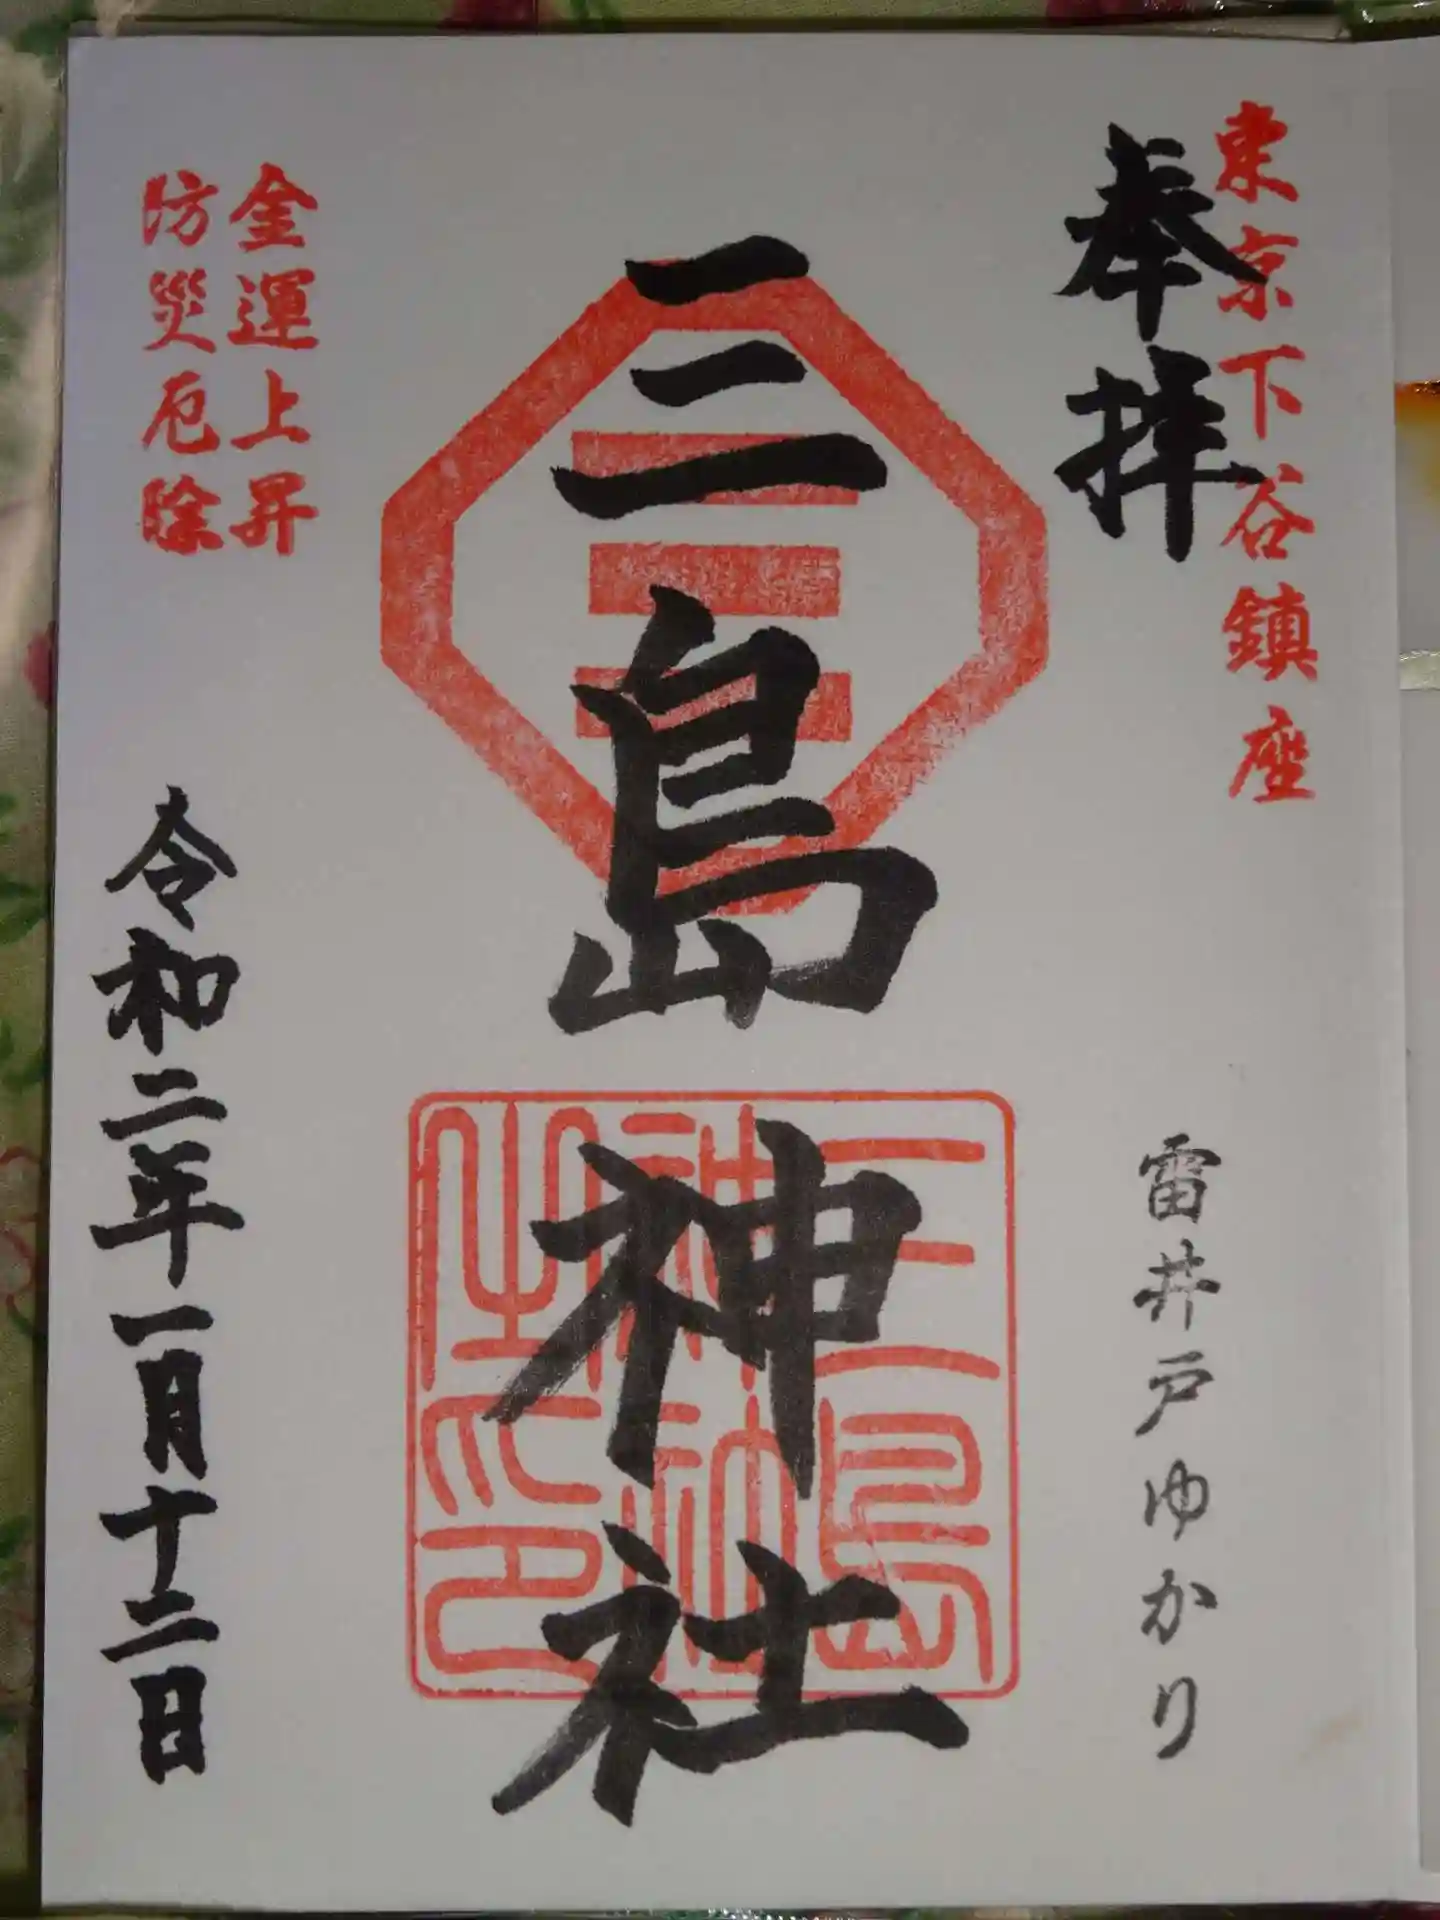 東京下谷鎮座
奉拝
雷井戸ゆかり
三島神社
三島
神社
之印
金運上昇
防災厄除
令和二年一月十二日